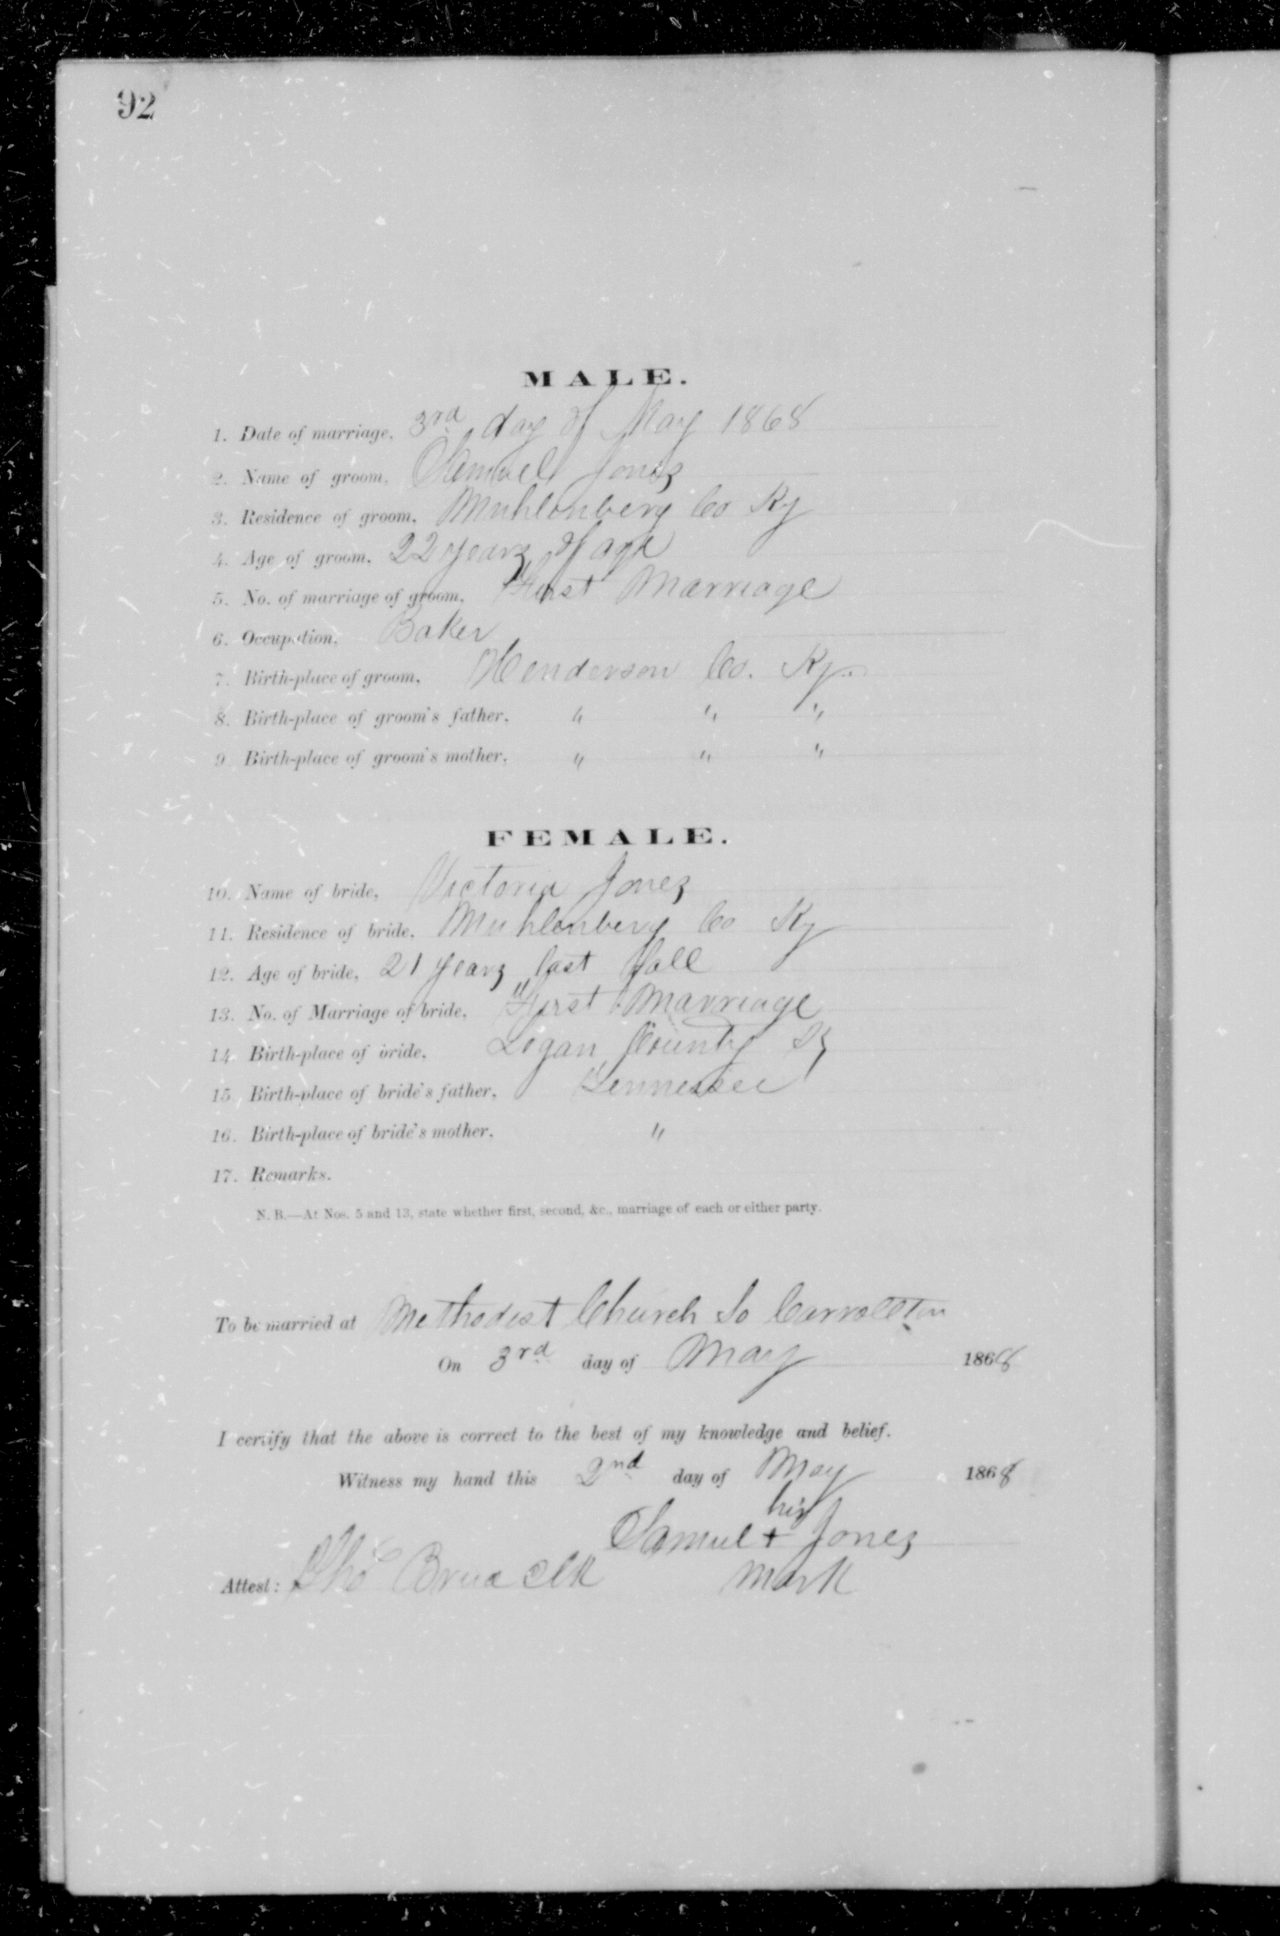 92
MALE.
1. Date of marriage, 3rd day of May 1868
2. Name of groom, Samuel Jones
3. Residence of groom, Muhlenberg Co Ky
4. Age of groom, 22 years of age
5. No. of marriage of groom, First Marriage
6. Occupation, Baker
7. Birth-place of groom, Henderson Co. Ky.
8. Birth-place of groom's father, " " "
9 Birth-place of groom's mother, " " "
FEMALE.
10. Name of bride, Victoria Jones
11. Residence of bride, Muhlenberg Co Ky
12. Age of bride, 21 years last fall
13. No. of Marriage of bride, First Marriage
14. Birth-place of bride, Logan County Ky
15. Birth-place of bride's father, Tennessee
16. Birth-place of bride's mother, "
17. Remarks.
N. B.—At Nos. 5 and 13, state whether first, second, &c., marriage of each or either party.
To be married at Methodist Church So Carrollton
On 3rd day of May 1868
I certify that the above is correct to the best of my knowledge and belief.
Witness my hand this 2nd day of May 1868
his
Samuel + Jones
Attest: Tho Clk mark